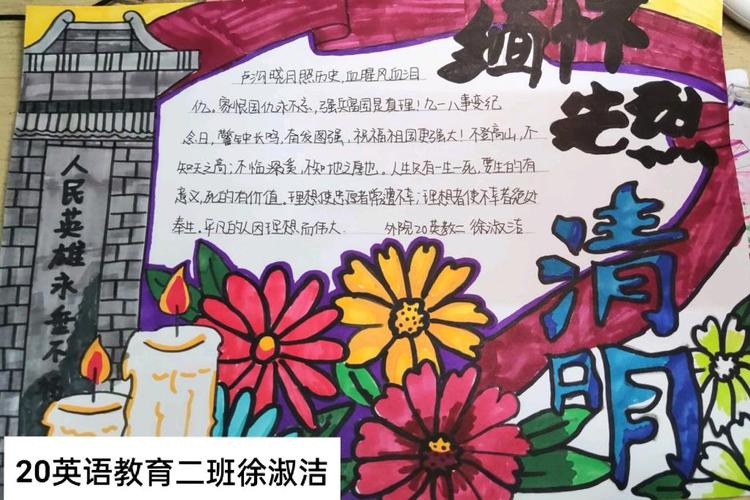 缅怀
先烈
清明
卢沟晓月照历史,血腥风血泪
仇。家恨国仇永不忘,强兵富国是真理!九一八事变纪
念日,警钟长鸣,奋发图强,祝福祖国更强大!不登高山,不
知天之高;不临深溪,不知地之厚也。人生只有一生一死,要生的有
意义,死的有价值。理想使忠厚者常遭不幸;理想者使不幸者绝处
奉生。平凡的人因理想而伟大。 外院20英教二 徐淑洁
人民英雄永垂不
20英语教育二班徐淑洁